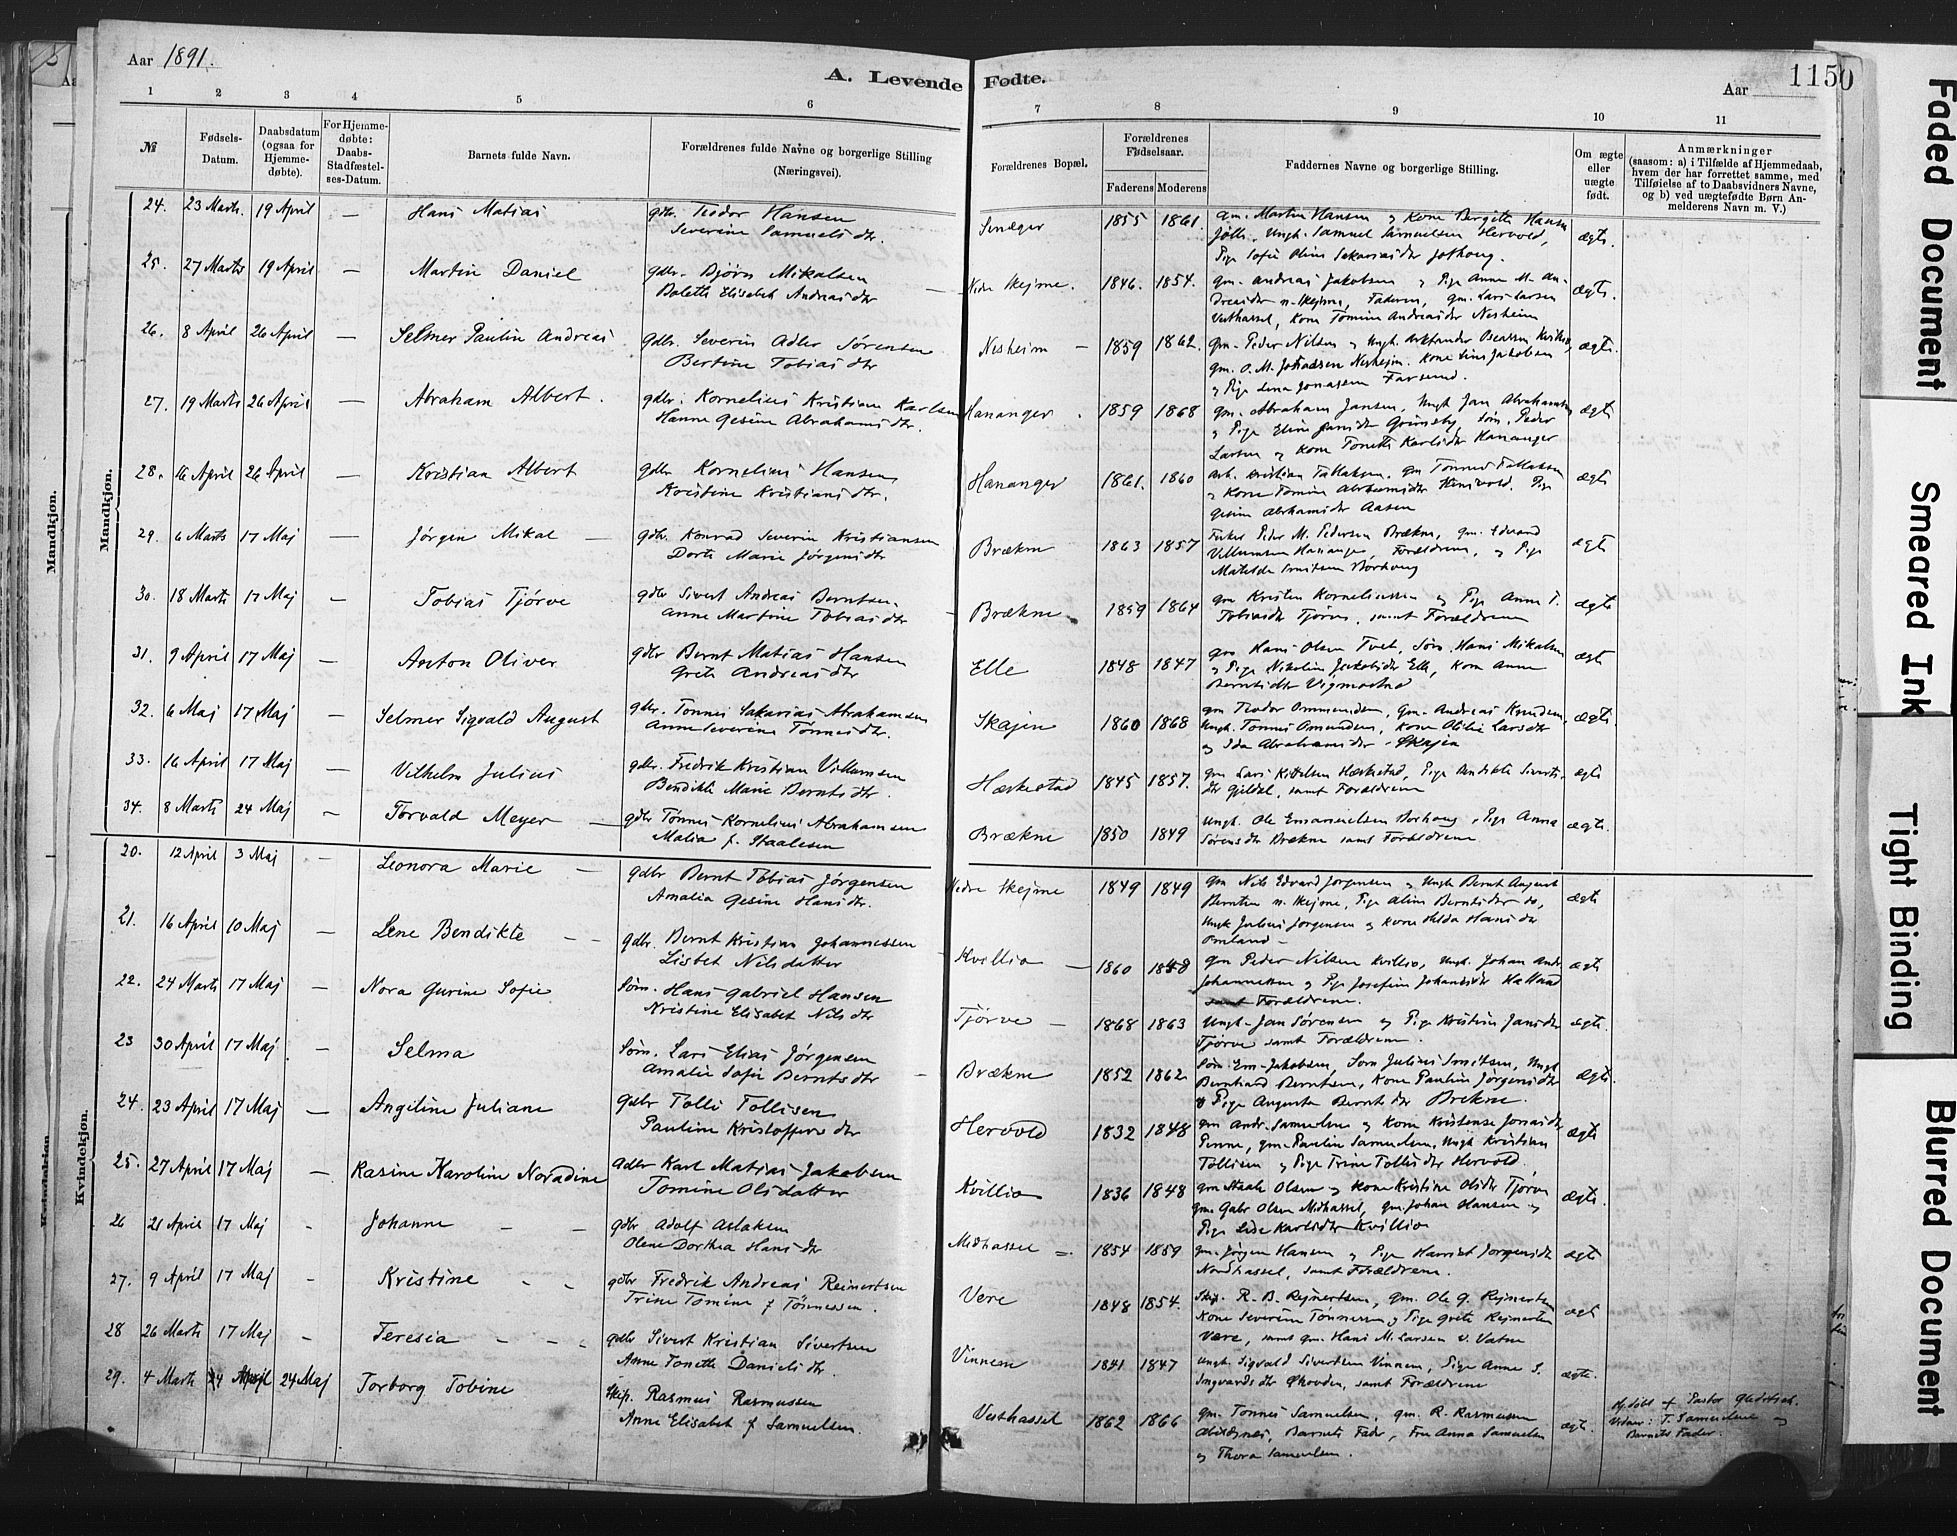 Aar 1891.
A. Levende Fødte.
Aar
1150
1 2 3 4 5 6 7 8 9 10 11
№
Fødsels-Datum.
Daabsdatum (ogsaa for Hjemme-døbte).
For Hjemme-døbte: Daabs-Stadfæstel-ses-Datum.
Barnets fulde Navn.
Forældrenes fulde Navne og borgerlige Stilling (Næringsvei).
Forældrenes Bopæl.
Forældrenes Fødselsaar.
Faderens Moderens
Faddernes Navne og borgerlige Stilling.
Om ægte eller uægte født.
Anmærkninger
(saasom: a) i Tilfælde af Hjemmedaab,
hvem der har forrettet samme, med
Tilføielse af to Daabsvidners Navne,
og b) ved uægtefødte Børn An-
melderens Navn m. V.)
Mandkjøn.
Mandkjøn.
24. 23 Marts. 19 April — Hans Matias gdbr. Teodor Hansen Severine Samuelsdtr. 1855 1861. gm. Martin Hansen og Kone Hansen ægte.
Ungk. Samuel Samuelsen Hervold,
Pige Sofie Oline
25. 27 Marts 19 April — Martin Daniel gdbr. Bjørn Mikalsen Bolette Elisabet Andreasdtr Nedre Skejme. 1846. 1854. gm. Andreas Jakobsen og Pige Anne M. An- ægte.
dreasdtr n. Skejme, Faderen, gm. Lars Larsen
Vesthassel, Kone Tomine Andreasdtr Nesheim
26. 8 April 26 April — Selmer Paulin Andreas gdbr. Severin Adler Sørensen Bertine Tobiasdtr Nesheim — 1859 1862. gm. Peder Nilsen og Ungk. ægte.
gm. O. M. Nesheim, Kone Jakobsen
og Pige Lena Jonassen Farsund.
27. 19 Marts 26 April — Abraham Albert. gdbr. Kornelius Kristian Karlsen Hanne Gesine Abrahamsdtr. Hananger. 1859 1868 gm. Abraham Jansen, Ungk Jan Abrahamsen ægte
og Pige Eline Jansdtr Grimsby, Søm. Peder
Larsen og Kone Tonette Karlsdtr Hananger
28. 16 April 26 April — Kristian Albert gdbr Kornelius Hansen Kristine Kristiansdtr. Hananger 1861. 1860 Kristian Tallaksen, gm Tønnes Tallaksen ægte
og Kone Tomine Abrahamsdtr Pige
Gesine Abrahamsdtr Aasen
29. 6 Marts 17 Maj — Jørgen Mikal — gdbr. Konrad Severin Kristiansen Dorte Marie Jørgensdtr Brækne 1863 1857 Peder M. Pedersen Brækne, gm. Edvard ægte
Villumsen Hananger, Forældrene, og Pige
Matilde Smitsen Borhaug
30. 18 Marts 17 Maj — Tobias Tjørve gdbr Sivert Andreas Berntsen Anne Martine Tobiasdtr — Brækne 1859 1864 gm Kristen Korneliussen og Pige Anne T. ægte
Tobiasdtr Tjørve, samt Forældrene
31. 9 April 17 Maj — Anton Oliver gdbr Bernt Matias Hansen Grete Andreasdtr Elle 1848 1847 gm Hans Olsen Tvet, Søm. Hans Mikalsen ægte
og Pige Nikoline Jakobsdtr Elle, Kone Anne
Berntsdtr Vigmostad
32. 6 Maj 17 Maj — Selmer Sigvald August gdbr. Tønnes Sakarias Abrahamsen Anne Severine Tønnesdtr. Skajen 1860 1868 gm Teodor Ommundsen, gm. Andreas Knudsen, ægte.
Ungk. Tønnes Omundsen, Kone Otilie Larsdtr
og Ida Abrahamsdtr Skajen
33. 16 April 17 Maj — Vilhelm Julius gdbr. Fredrik Kristian Villumsen Bendikte Marie Berntsdtr. Hæskestad 1845 1857. gm Lars Kittelsen Hæskestad, Pige Bendikte Siverts- ægte
dtr Gjeldal, samt Forældrene
34. 8 Marts 24 Maj — Torvald Meyer — gdbr Tønnes Kornelius Abrahamsen Malia f. Staalesen Brækne 1850 1849 Ungk. Ole Emanuelsen Borhaug, Pige Anna ægte.
Sørensdtr Brækne samt Forældrene
Kvindekjøn.
20. 12 April 3 Maj — Leonora Marie — gdbr Bernt Tobias Jørgensen Amalia Gesine Hansdtr. Nedre Skejme 1849 1849 gm Nils Edvard Jørgensen og Ungk Bernt August ægte
Berntsen n. Skejme, Pige Aline Berntsdtr do,
Ungk Julius Jørgensen og Kone Hilda Hansdtr
21. 16 April 10 Maj — Lene Bendikte — — gdbr. Bernt Kristian Johannessen Lisbet Nilsdatter Kvillio — 1860 gm Peder Nilsen Kvillio, Ungk. Johan Andr. ægte
Johannessen og Pige Josefine Johansdtr
samt Forældrene.
22. 24 Marts 17 Maj — Nora Gurine Sofie Søm. Hans Gabriel Hansen Kristine Elisabet Nilsdtr Tjørve — 1868 1863 Ungk. Jan Sørensen og Pige Kristine Jansdtr ægte.
Tjørve samt Forældrene.
23 30 April 17 Maj — Selma Søm. Lars Elias Jørgensen Amalie Sofie Berntsdtr — Brækne 1852 1862 Søm Em. Jakobsen, Søm Julius Smitsen, Ungk ægte.
Bernhard Berntsen, Kone Pauline Jørgensdtr
og Pige Augusta Berntsdtr Brekne.
24. 23 April 17 Maj — Angeline Juliane gdbr Tolli Tollisen Pauline Kristoffersdtr Hervold 1832 1848 gm Andr. Samuelsen og Kone Kristense Jonasdtr ægte
Penne, gm. Paulin Samuelsen, Ungk Kristian
Tollisen og Pige Trine Tollisdtr Hervold.
25. 27 April 17 Maj — Rasine Karoline Noradine gdbr Karl Matias Jakobsen Tomine Olsdatter Kvillio 1836 1848 gm Staale Olsen og Kone Kristine Olsdtr Tjørve ægte.
gm. Gabr Olsen Midhassel, gm. Johan Hansen og
Pige Lise Karlsdtr Kvillio
26 21 April 17 Maj - Johanne — — gdbr Adolf Aslaksen Olene Dorthea Hansdtr Midhassel 1854 1859 gm. Jørgen Hansen og Pige Harriet Jørgensdtr ægte
Nordhassel, samt Forældrene.
27. 9 April 17 Maj - Kristine - - gdbr Fredrik Andreas Reinertsen Trine Tomine f Tønnessen. Vere 1848 1854. Skip. R. B. Rejnertsen, gm. Ole G. Rejnertsen ægte
Kone Severine Tønnessen og Pige Grete Rejnertsen
Være, samt gm. Hans M. Larsen v. Vatne
28 26 Marts 17 Maj - Teresia - - - gdbr Sivert Kristian Sivertsen Anne Tonette Danielsdtr. Vinnem 1841 1847 Ungk. Sigvald Sivertsen Vinnem, Pige Anne S. ægte.
Ingvardsdtr Skovden, samt Forældrene
29. 4 Marts April 24 Maj Torborg Tobine Skip. Rasmus Rasmussen Anne Elisabet f Samuelsen. Vesthassel 1862 1866 gm. Tønnes Samuelsen, gm. R. Rasmussen ægte. Hj. døbt af Pastor
Barnets Fader, Fru Anna Samuelsen Vidner: T. Samuelsen og
og Thora Samuelsen. Barnets Fader.
Faded Document
Smeared Ink
Tight Binding
Blurred Document